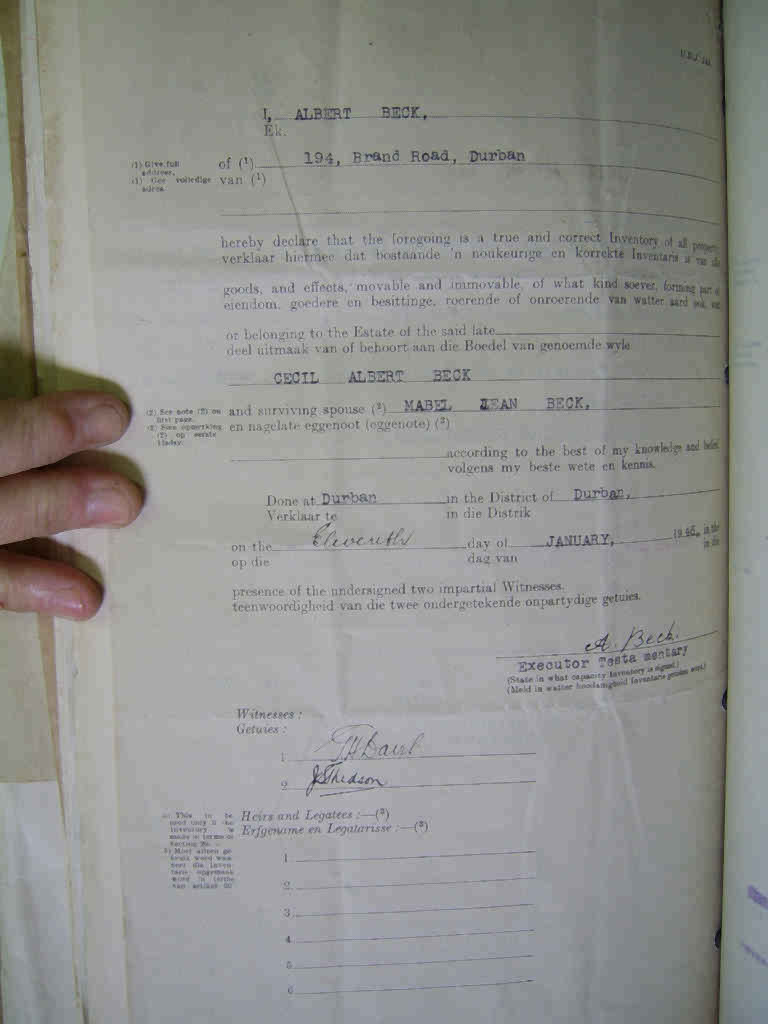 I, ALBERT BECK,
Ek.
(1) Give full address.
(1) Gee volledige adres.
of (1) 194, Brand Road, Durban
van (1)
hereby declare that the foregoing is a true and correct Inventory of all property
verklaar hiermee dat bostaande 'n noukeurige en korrekte Inventaris is van alle
goods, and effects, movable and immovable, of what kind soever, forming part of
eiendom, goedere en besittinge, roerende of onroerende van watter aard ook, wat
or belonging to the Estate of the said late
deel uitmaak van of behoort aan die Boedel van genoemde wyle
CECIL ALBERT BECK
(2) See note (2) on first page.
(2) Sien opmerking (2) op eerste bladsy.
and surviving spouse (2) MABEL JEAN BECK,
en nagelate eggenoot (eggenote) (2)
according to the best of my knowledge and belief
volgens my beste wete en kennis.
Done at Durban in the District of Durban,
Verklaar te in die Distrik
on the Eleventh day of JANUARY, 1946, in the
op die dag van in die
presence of the undersigned two impartial Witnesses.
teenwoordigheid van die twee ondergetekende onpartydige getuies.
A. Beck.
Executor Testa mentary
(State in what capacity Inventory is signed.)
(Meld in watter hoedanigheid Inventaris geteken word.)
Witnesses :
Getuies :
1
2
Heirs and Legatees :—(3)
Erfgename en Legatarisse :—(3)
This to be used only if the inventory is made in terms of Section No.
1
2
3
4
5
6